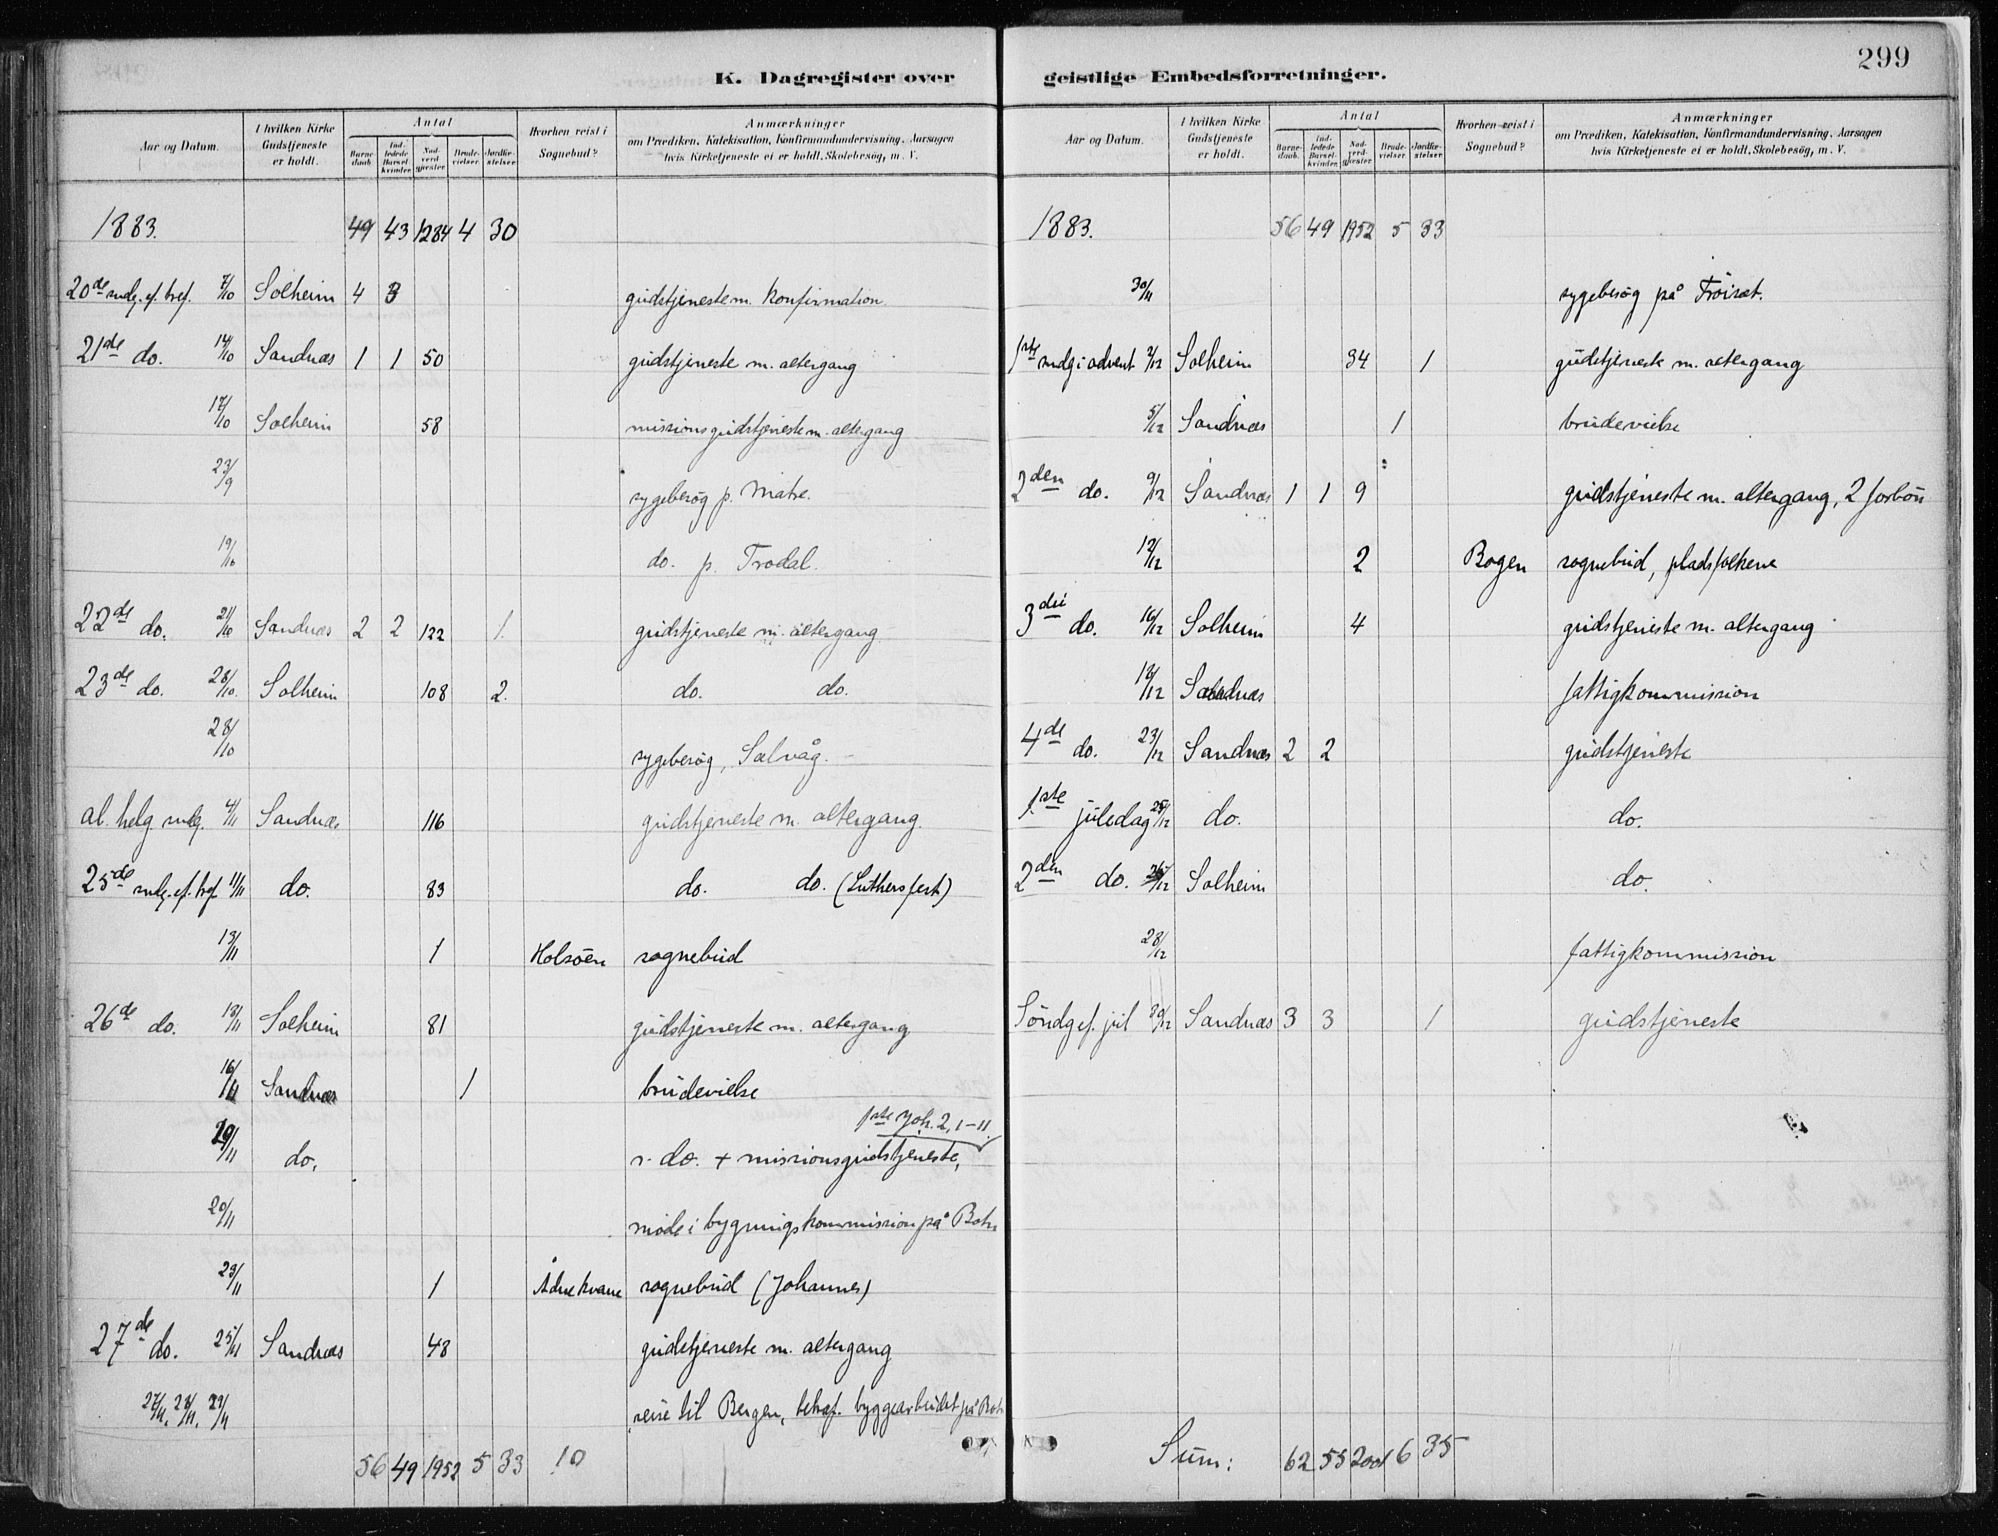 299
K. Dagregister over
Aar og Datum.
I hvilken Kirke Gudstjeneste er holdt.
Antal
Barne-daab.
Ind-ledede Barsel-kvinder.
Nad-verd-gjester.
Brude-vielser.
Jordfæ-stelser.
Hvorhen reist i Sognebud?
Anmærkninger
om Prædiken, Katekisation, Konfirmandundervisning, Aarsagen
hvis Kirketjeneste ei er holdt, Skolebesøg, m. V.
1883. 49 43 1284 4 30
20de sndg. ef. tref. 7/10 Solheim 4 3 gudstjeneste m. konfirmation
21de do. 14/10 Sandnæs 1 1 50 gudstjeneste m. altergang
17/10 Solheim 58 missionsgudstjeneste m. altergang
23/9 sygebesøg p. Matre.
19/10 do. p. Trodal.
22de do. 21/10 Sandnæs 2 2 122 1. gudstjeneste m. altergang.
23de do. 28/10. Solheim 108 2. do. do.
28/10 sygebesøg, Salvåg.
al. helg. sndg. 4/11 Sandnæs 116 gudstjeneste m. altergang.
25de sndg. ef. tref. 11/11 do. 83 do. do. (Luthersfest)
13/11 1 Holsöen sognebud
26de do. 18/11 Solheim 81 gudstjeneste m. altergang
16/11 Sandnæs 1 brudevielse
1ste Joh. 2, 1-11.
do. do. + missionsgudstjeneste,
20/11 möde i bygningskommission på
23/11 1 Ådnekvame sognebud (Johannes)
27de do. 25/11 Sandnæs 48 gudstjeneste m. altergang
27/11, 28/11, 29/11 reise til Bergen, betræf. byggearbeidet på
56 49 1952 5 33 10
geistlige Embedsforretninger.
Aar og Datum.
I hvilken Kirke Gudstjeneste er holdt.
Antal
Barne-daab.
Ind-ledede Barsel-kvinder.
Nad-verd-gjester.
Brude-vielser.
Jordfæ-stelser.
Hvorhen reist i Sognebud?
Anmærkninger
om Prædiken, Katekisation, Konfirmandundervisning, Aarsagen
hvis Kirketjeneste ei er holdt, Skolebesøg, m. V.
1883. 56 49 1952 5 33
30/11 sygebesøg på Fröiset.
1ste sndg i advent 2/12 Solheim 34 1 gudstjeneste m. altergang
5/12 Sandnæs 1 brudevielse
2den do. 9/12 Sandnæs 1 1 9 gudstjeneste m. altergang, 2 forbön
12/12 2 Bogen sognebud, pladsfolkene
3die do. 16/12 Solheim 4 gudstjeneste m. altergang
18/12 Sandnæs fattigkommission
4de do. 23/12 Sandnæs 2 2 gudstjeneste
1ste juledag 25/12 do. do.
2den do. 26/12 Solheim do.
28/12 fattigkommission
Söndg ef. jul 30/12 Sandnæs 3 3 1 gudstjeneste
Sum: 62 55 2001 6 35